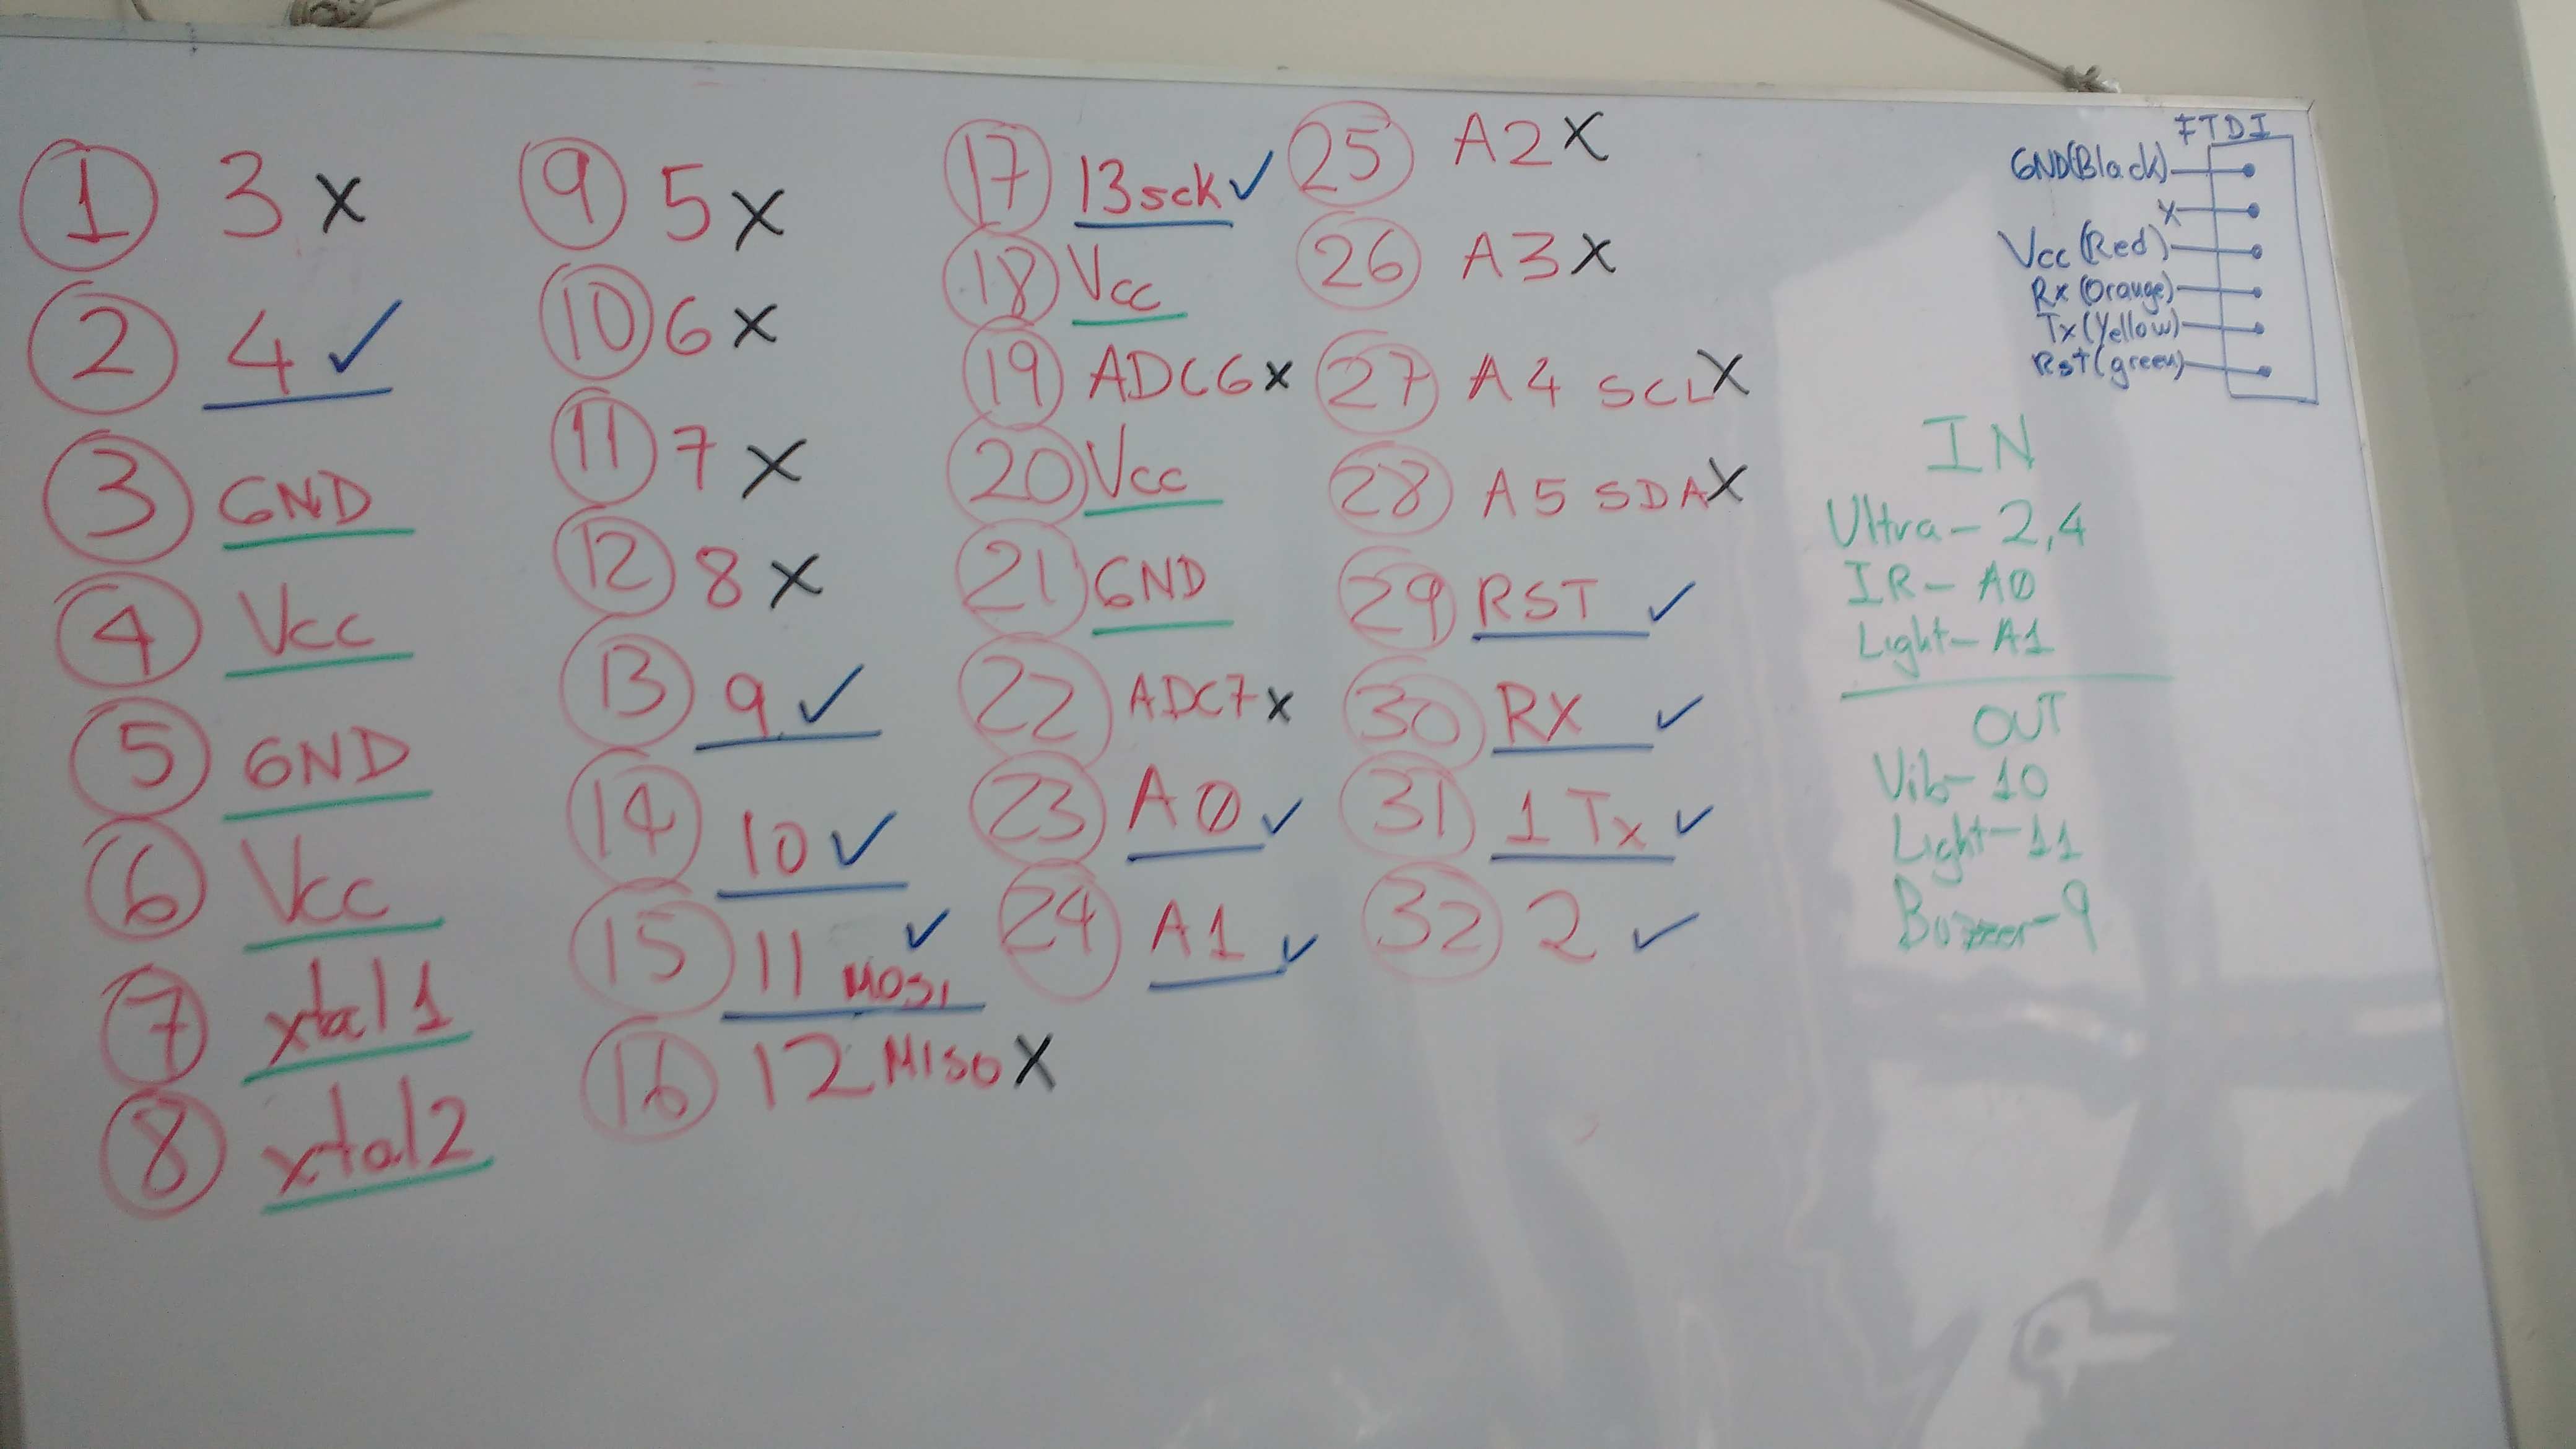 1 3 X
2 4 ✓
3 GND
4 Vcc
5 GND
6 Vcc
7 xtal1
8 xtal2
9 5 X
10 6 X
11 7 X
12 8 X
13 9 ✓
14 10 ✓
15 11 MOSI ✓
16 12 MISO X
17 13 sck ✓
18 Vcc
19 ADC6 X
20 Vcc
21 GND
22 ADC7 X
23 A0 ✓
24 A1 ✓
25 A2 X
26 A3 X
27 A4 SCL X
28 A5 SDA X
29 RST ✓
30 RX ✓
31 1 Tx ✓
32 2 ✓
FTDI
GND(Black)
X
Vcc (Red)
Rx (Orange)
Tx (Yellow)
Rst (green)
IN
Ultra - 2,4
IR - A0
Light - A1
OUT
Vib - 10
Light - 11
Buzzer - 9